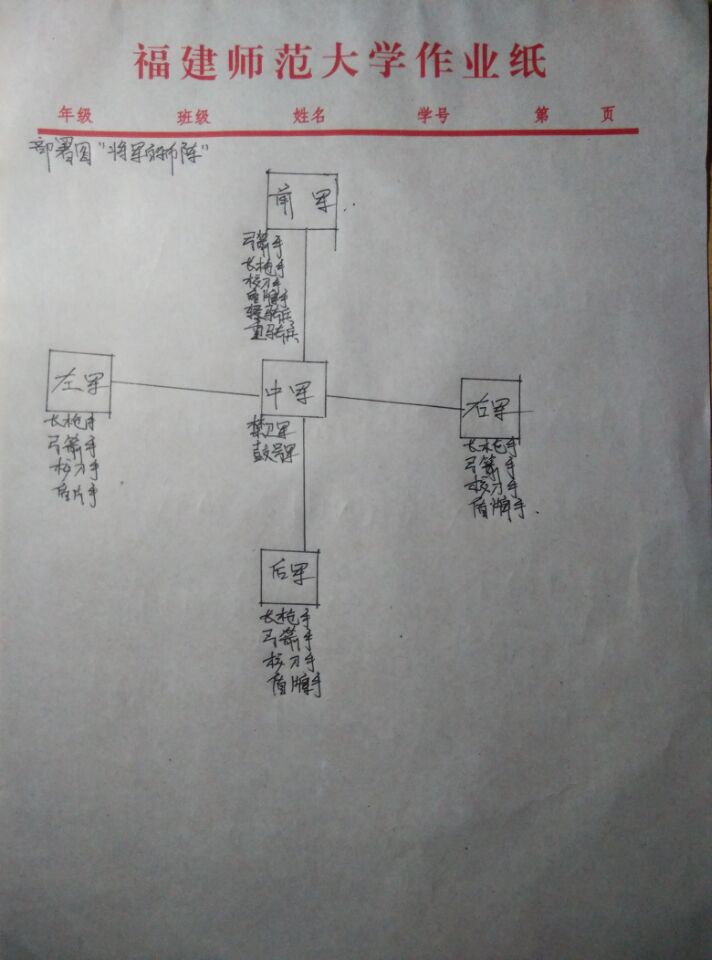 福建师范大学作业纸
年级 班级 姓名 学号 第 页
部署图"将军的布阵"
前军
弓箭手
长枪手
校刀手
盾牌手
轻骑兵
重骑兵
左军
长枪手
弓箭手
校刀手
盾片手
中军
禁卫军
鼓号军
右军
长枪手
弓箭手
校刀手
盾牌手.
后军
长枪手
弓箭手
校刀手
盾牌手